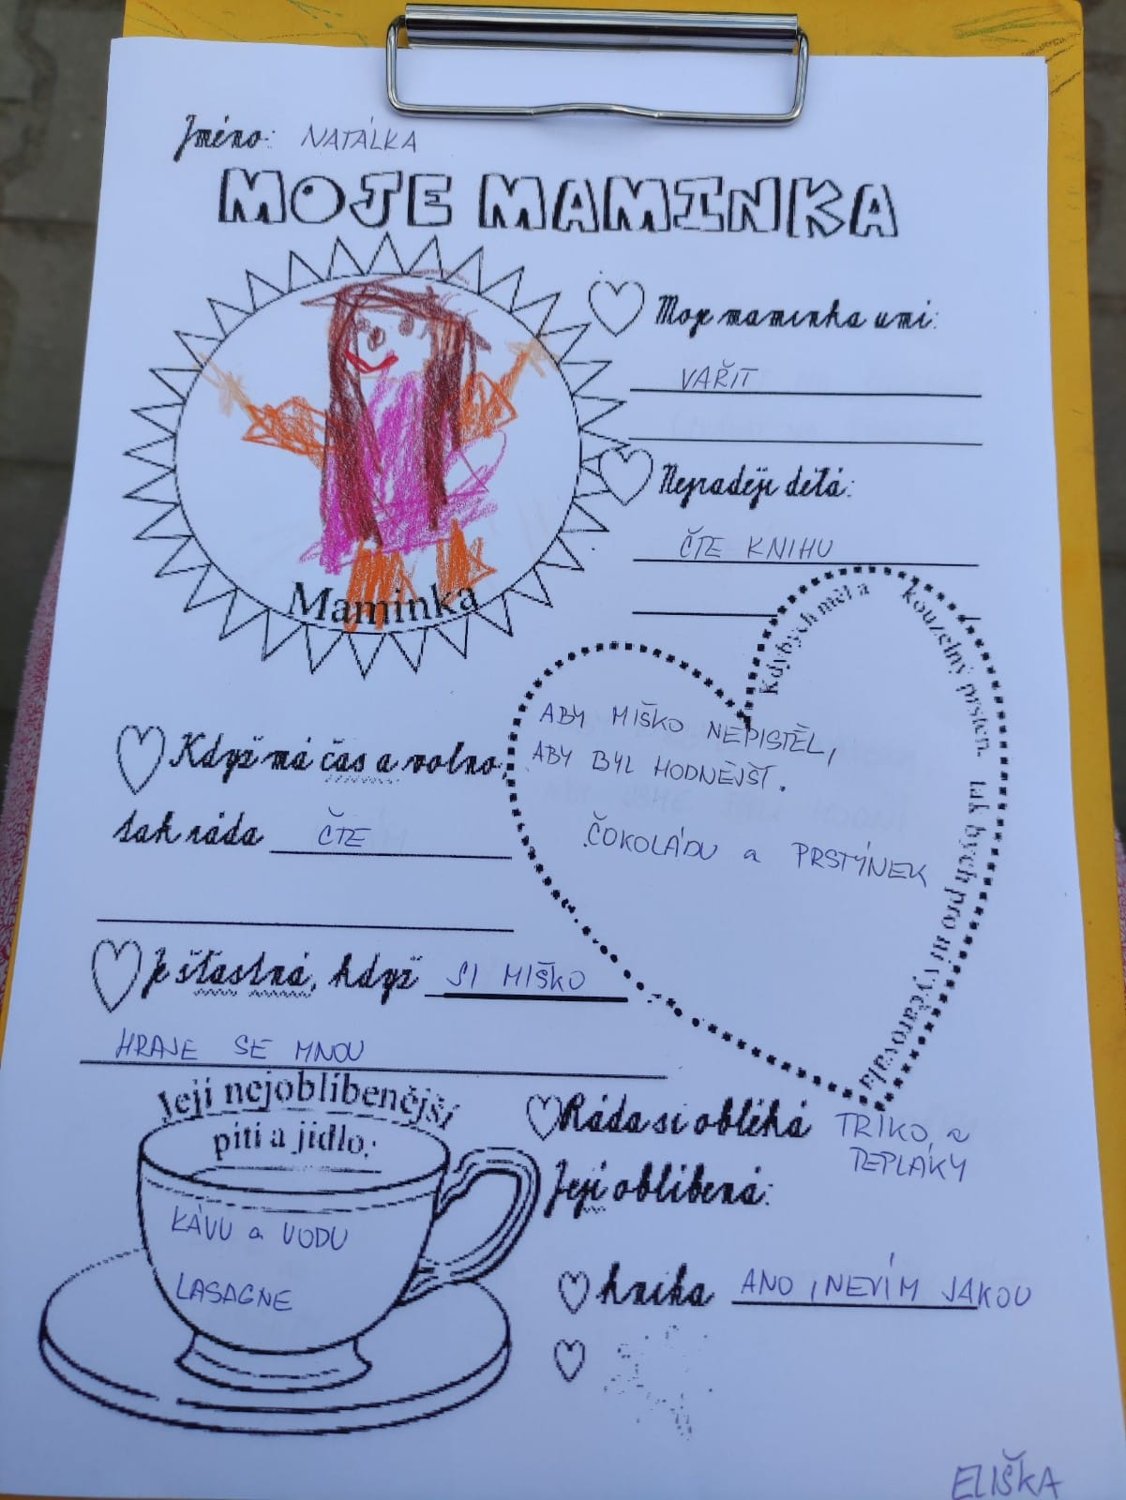 Jméno: NATÁLKA
MOJE MAMINKA
Maminka
Moje maminka umí:
VAŘIT
Nejraději dělá:
ČTE KNIHU
Kdybych měla kouzelný prsten, tak bych pro ni vyčarovala
ABY MIŠKO NEPIŠTĚL,
ABY BYL HODNĚJŠÍ.
ČOKOLÁDU a PRSTÝNEK
Když má čas a volno,
tak ráda ČTE
Je šťastná, když SI MIŠKO
HRAJE SE MNOU
Její nejoblíbenější
pití a jídlo:
KÁVU a VODU
LASAGNE
Ráda si obléká TRIKO a
TEPLÁKY
Její oblíbená:
kniha ANO, NEVÍM JAKOU
ELIŠKA